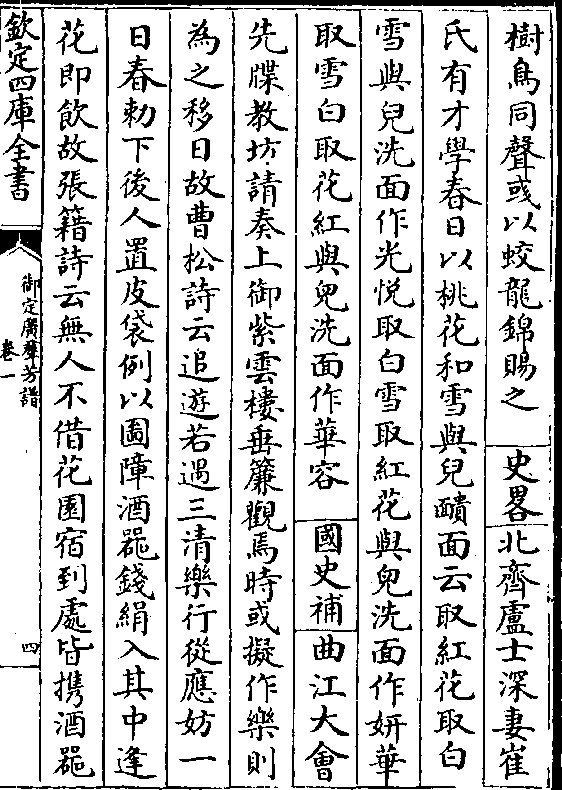 樹鳥同聲或以蛟龍錦賜之 史畧北齊盧士深妻崔
氏有才學春日以桃花和雪與兒靧面云取紅花取白
雪與兒洗面作光悅取白雪取紅花與兒洗面作妍華
取雪白取花紅與兒洗面作華容 國史補曲江大會
先牒教坊請奏上御紫雲樓垂簾觀焉時或擬作樂則
為之移日故曹松詩云追遊若遇三清樂行從應妨一
日春勅下後人置皮袋例以圖障酒噐錢絹入其中逢
花即飲故張籍詩云無人不借花園宿到處皆攜酒噐
欽定四庫全書
御定廣羣芳譜
卷一
四